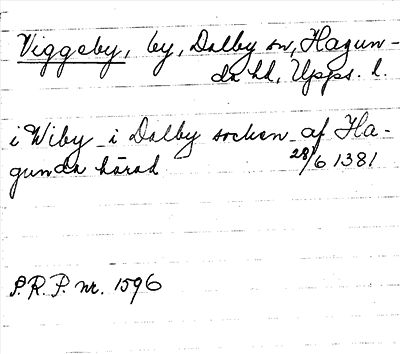 Viggeby, by, Dalby sn, Hagun-
da hd, Upps. l.
i Wiby i Dalby socken af Ha-
gunda härad 28/6 1381
S.R.P. nr. 1596